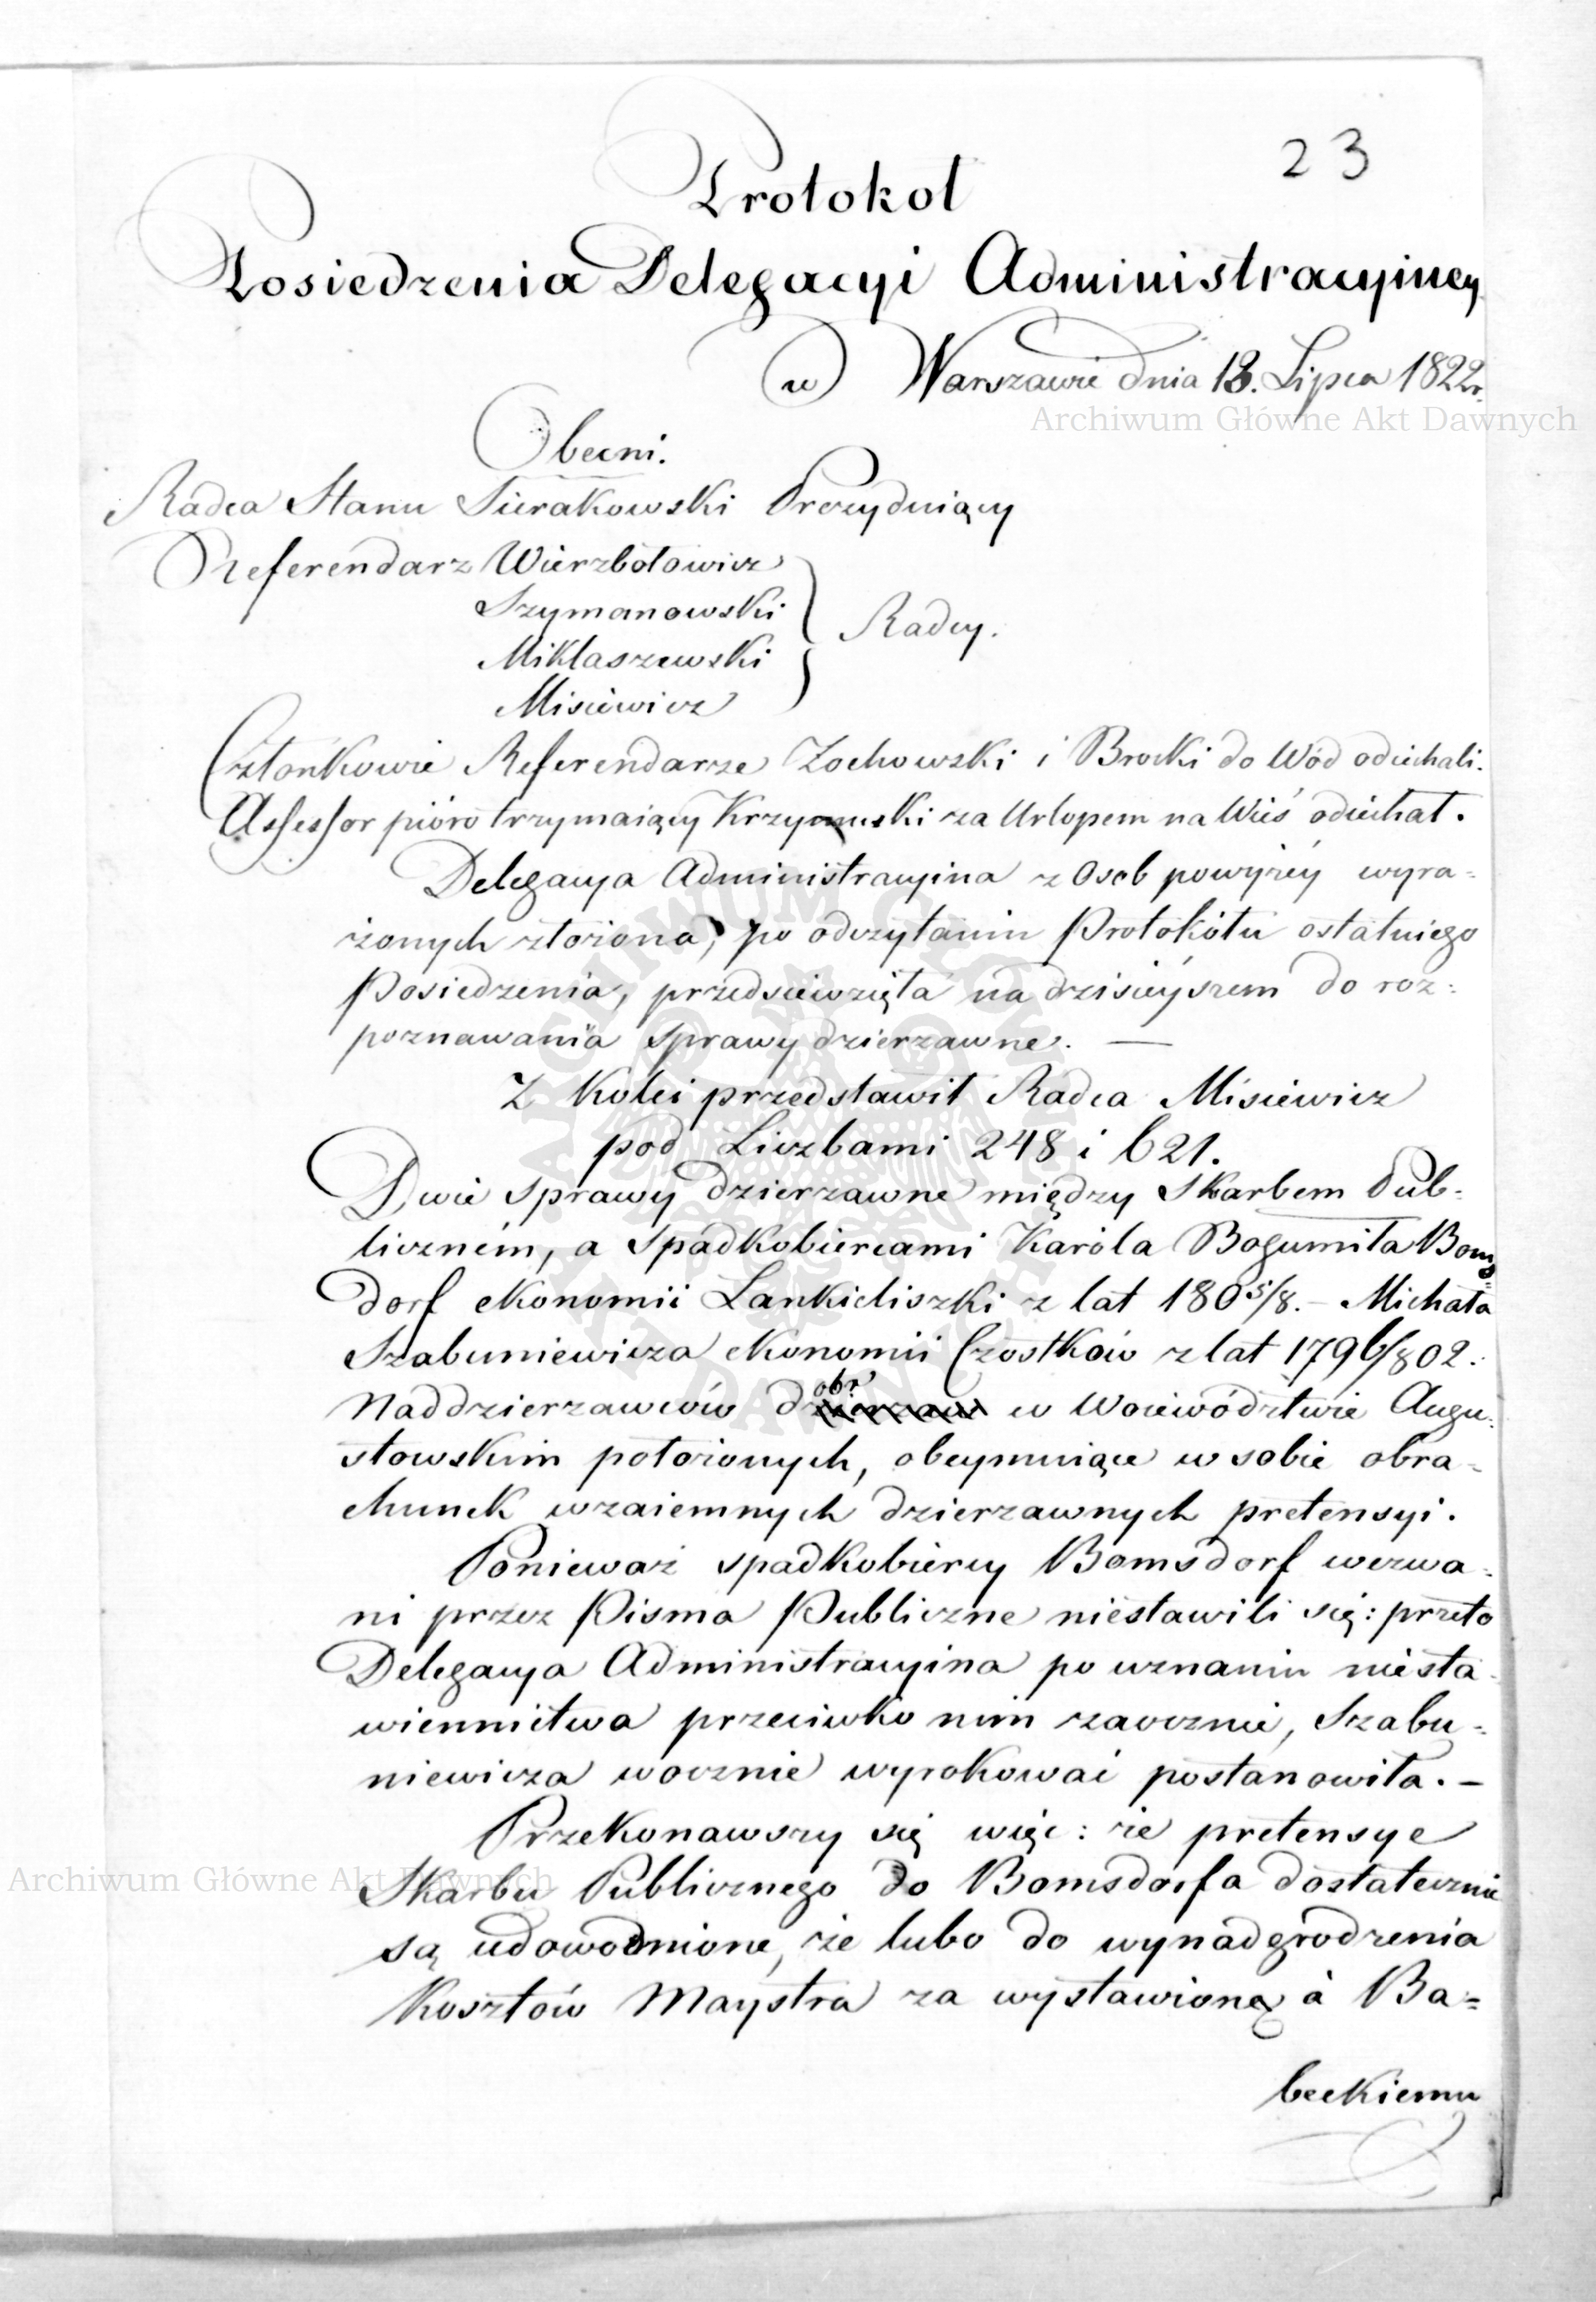 23
Protokoł
Posiedzenia Delegacyi Administracyiney
w Warszawie dnia 18. Lipca 1822r.
Archiwum Główne Akt Dawnych
Obecni.
Radca Stanu Sierakowski Prezyduiący
Referendarz Wierzbołowicz
Szymanowski
Radcy.
Miklaszewski
Misiewicz
Członkowie Referendarze Zochowski i Brocki do Wód odiechali.
Assessor pióro trzymaiący za Urlopem na Wieś odiechał.
Delegacya Administracyina z Osob powyżéy wyra=
żonych złożona, po odczytaniu Protokółu ostatniego
Posiedzenia, przedsiewzięła na dzisieyszem do roz=
poznawania sprawy dzierzawne. —
Z Kolei przedstawił Radca Misiewicz
pod Liczbami 248 i 621.
Dwie sprawy dzierzawne między Skarbem Pub=
liczném, a Spadkobiercami Karóla Bogumiła Boms=
dorf ekonomii Lankieliszki z lat 1805/8. – Michała
Szabuniewicza ekonomii Czostków z lat 1796/802.
Naddzierzawców dóbr w Woiewództwie Augu=
stowskim położonych, obeymuiące w sobie obra=
chunek wzaiemnych dzierzawnych pretensyi.
Ponieważ spadkobiercy Bomsdorf wezwa=
ni przez Pisma Publiczne niestawili się: przeto
Delegacya Administracyina po uznaniu niesta=
wiennictwa przeciwko nim zaocznie, Szabu=
niewicza wocznie wyrokować postanowiła. –
Przekonawszy się więc: że pretensye
Archiwum Główne Akt Dawnych
Skarbu Publicznego do Bomsdorfa dostatecznie
są udowodnione, że lubo do wynadgrodzenia
Kosztów Maystra za wystawioną à Ba=
beckiemu